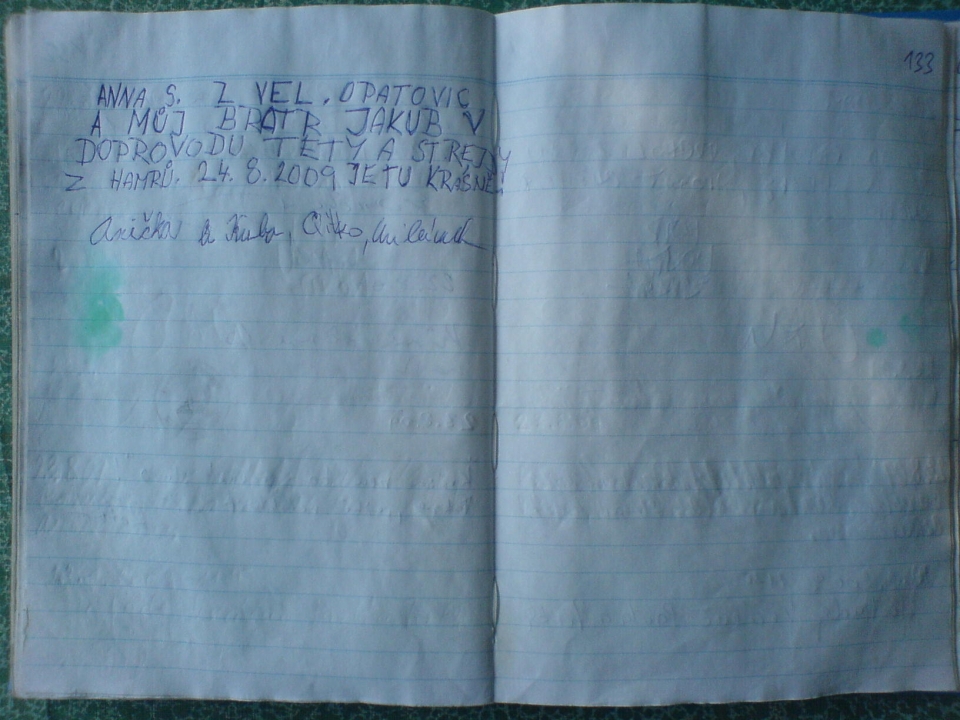 133
ANNA S. Z VEL. OPATOVIC
A MŮJ BRATR JAKUB V
DOPROVODU TETY A STREJDY
Z HAMRŮ. 24. 8. 2009 JE TU KRÁSNĚ!
Anička a Kuba,